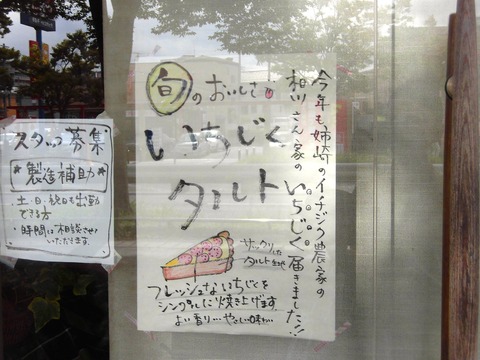 今年も、姉崎のイチジク農家の
相川さん家のいちじく届きました!!
旬のおいしさ
いちじく
タルト
サックリした
タルト生地
フレッシュないちじくを
シンプルに焼き上げます。
よい香り…やさしい味わい…
スタッフ募集
製造補助
・土・日・祝日も出勤
できる方
・時間は相談させて
いただきます。